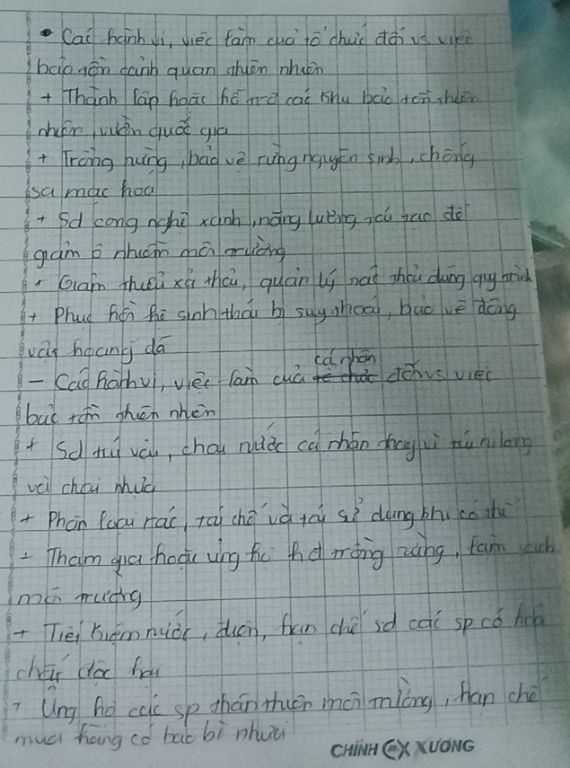 • Các hành vi, việc làm của tổ chức đối vs việc
bảo tồn cảnh quan thiên nhiên
+ Thành lập hoặc hỗ trợ các khu bảo tồn thiên
nhiên, vườn quốc gia
+ Trồng rừng, bảo vệ rừng nguyên sinh, chống
sa mạc hoá
+ Sd công nghệ xanh, năng lượng tái tạo để
giảm ô nhiễm môi trường
+ Giảm thiểu xả thải, quản lý rác thải đúng quy trình
+ Phục hồi hệ sinh thái bị suy thoái, bảo vệ động
vật hoang dã
- Các hành vi, việc làm của cá nhân đối vs việc
bảo tồn thiên nhiên
+ Sd túi vải, chai nước cá nhân thay vì túi nilong
và chai nhựa
+ Phân loại rác, tái chế và tái sử dụng khi có thể
+ Tham gia hoặc ủng hộ trồng rừng, làm sạch
môi trường
+ Tiết kiệm nước, điện, hạn chế sd các sp có hóa
chất độc hại
+ Ủng hộ các sp thân thiện môi trường, hạn chế
mua hàng có bao bì nhựa
CHÍNH XƯƠNG